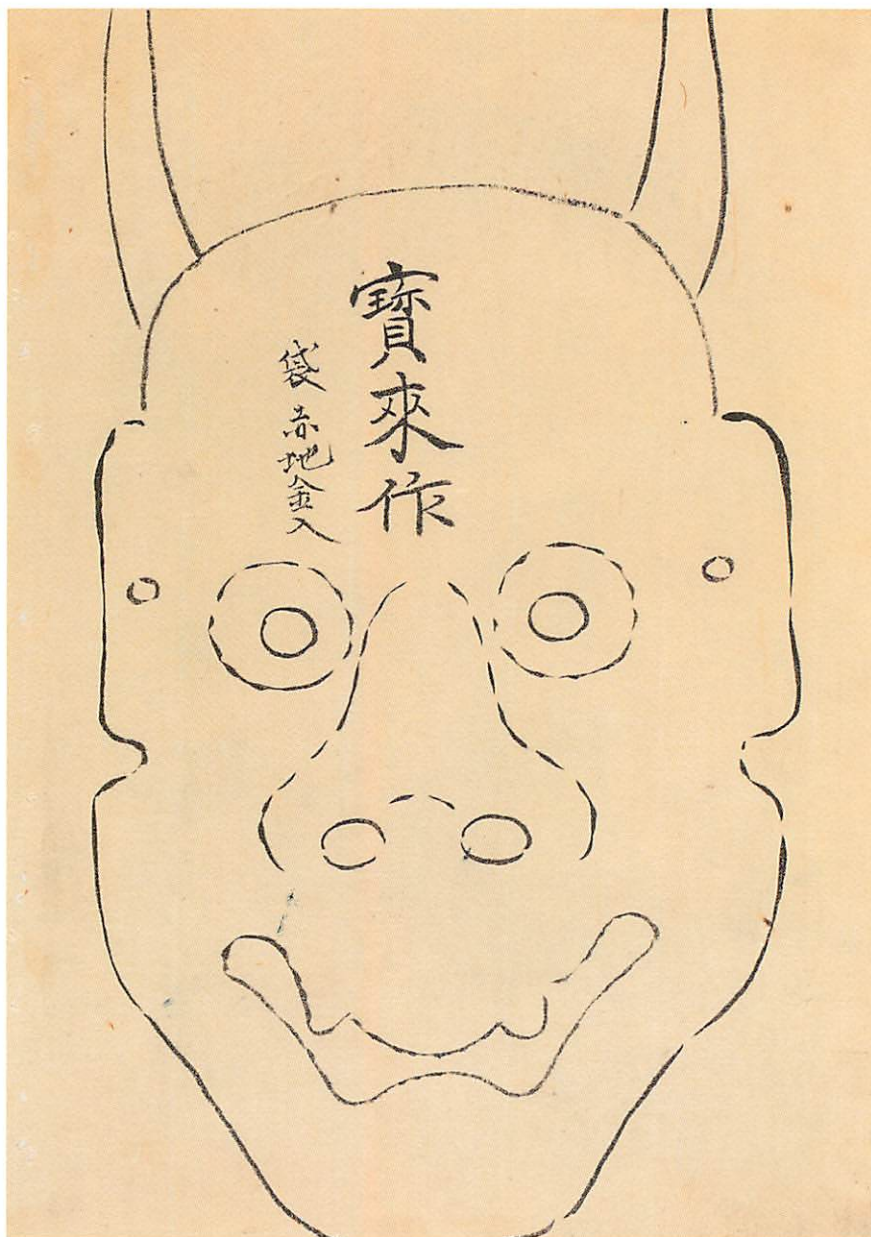 寳來作
袋 赤地金入